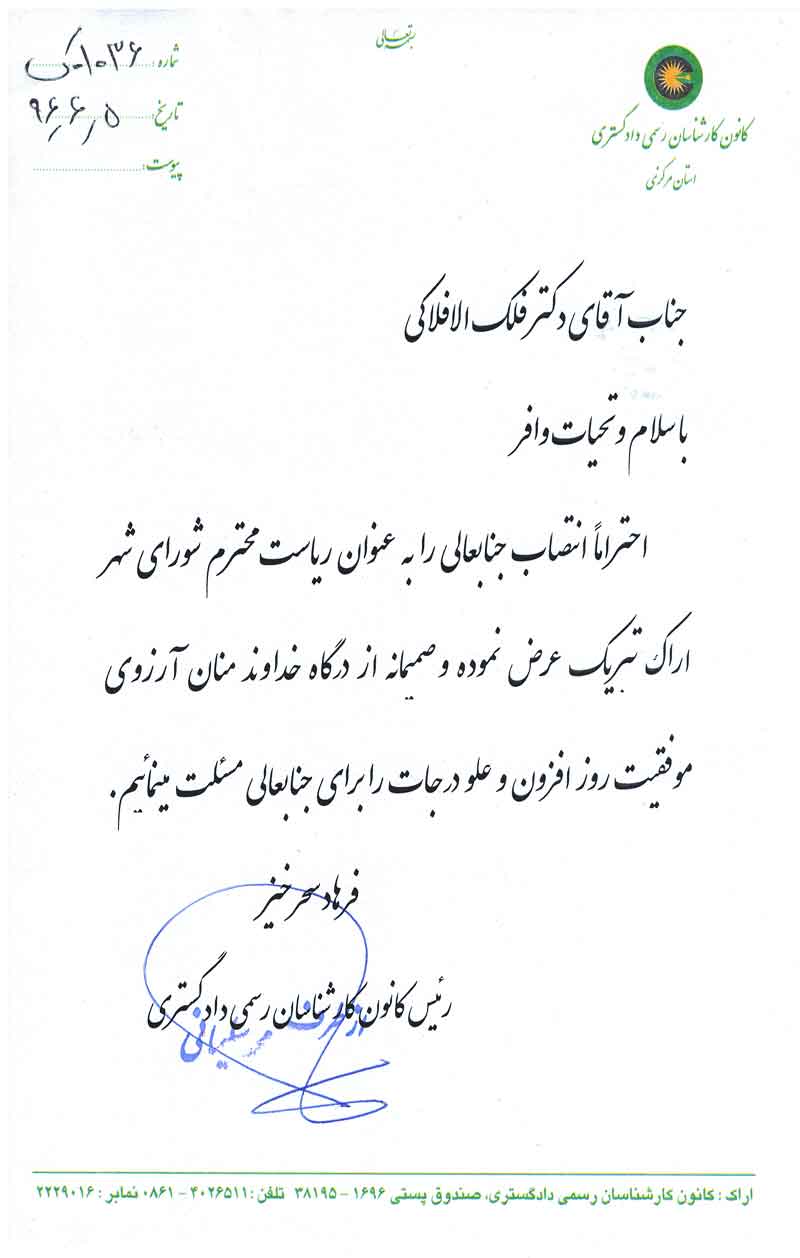 بسمه تعالی
کانون کارشناسان رسمی دادگستری
استان مرکزی
شماره : ۱۰۳۶
تاریخ: ۹۶٫۶٫۵
پیوست:
جناب آقای دکتر فلک الافلاکی
با سلام و تحیات وافر
احتراماً انتصاب جنابعالی را به عنوان ریاست محترم شورای شهر
اراک تبریک عرض نموده و صمیمانه از درگاه خداوند منان آرزوی
موفقیت روز افزون و علو درجات را برای جنابعالی مسئلت مینمائیم.
فرهاد سحرخیز
رئیس کانون کارشناسان رسمی دادگستری
از طرف
اراک : کانون کارشناسان رسمی دادگستری، صندوق پستی ۱۶۹۶ – ۳۸۱۹۵ تلفن : ۴۰۲۶۵۱۱ – ۰۸۶۱ نمابر : ۲۲۲۹۰۱۶